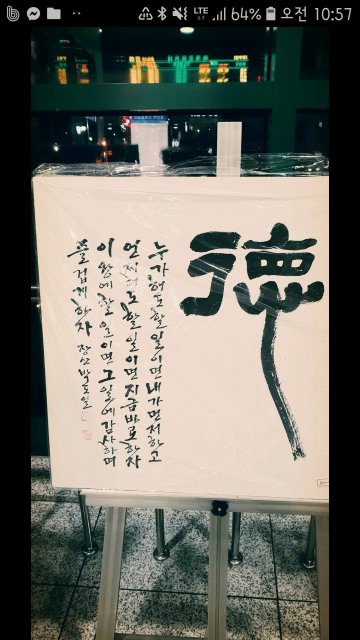 LTE 64% 오전 10:57
德
누가해도할일이면내가먼저하고
언제해도할일이면지금바로하자
이왕에할일이면그일에감사하며
즐겁게하자